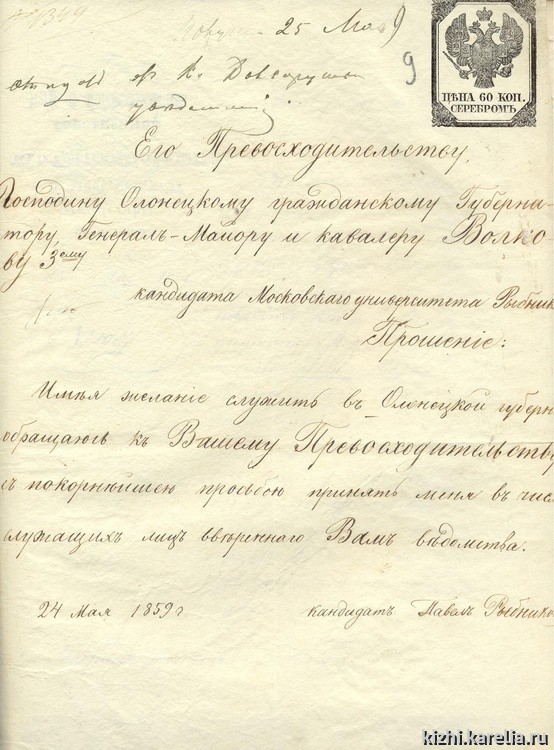 25 Мая
9
ЦѢНА 60 КОП.
СЕРЕБРОМЪ
Его Превосходительству,
Господину Олонецкому гражданскому Губерна-
тору, Генералъ-Майору и кавалеру Волко-
ву 3ему
кандидата Московскаго университета Рыбник
Прошеніе:
Имѣя желаніе служить въ Олонецкой губерн
обращаюсь къ Вашему Превосходительству
съ покорнѣйшею просьбою принять меня въ чис
служащихъ лицъ ввѣреннаго Вамъ вѣдомства.
24 Мая 1859 г
кандидатъ Павелъ Рыбнико
kizhi.karelia.ru